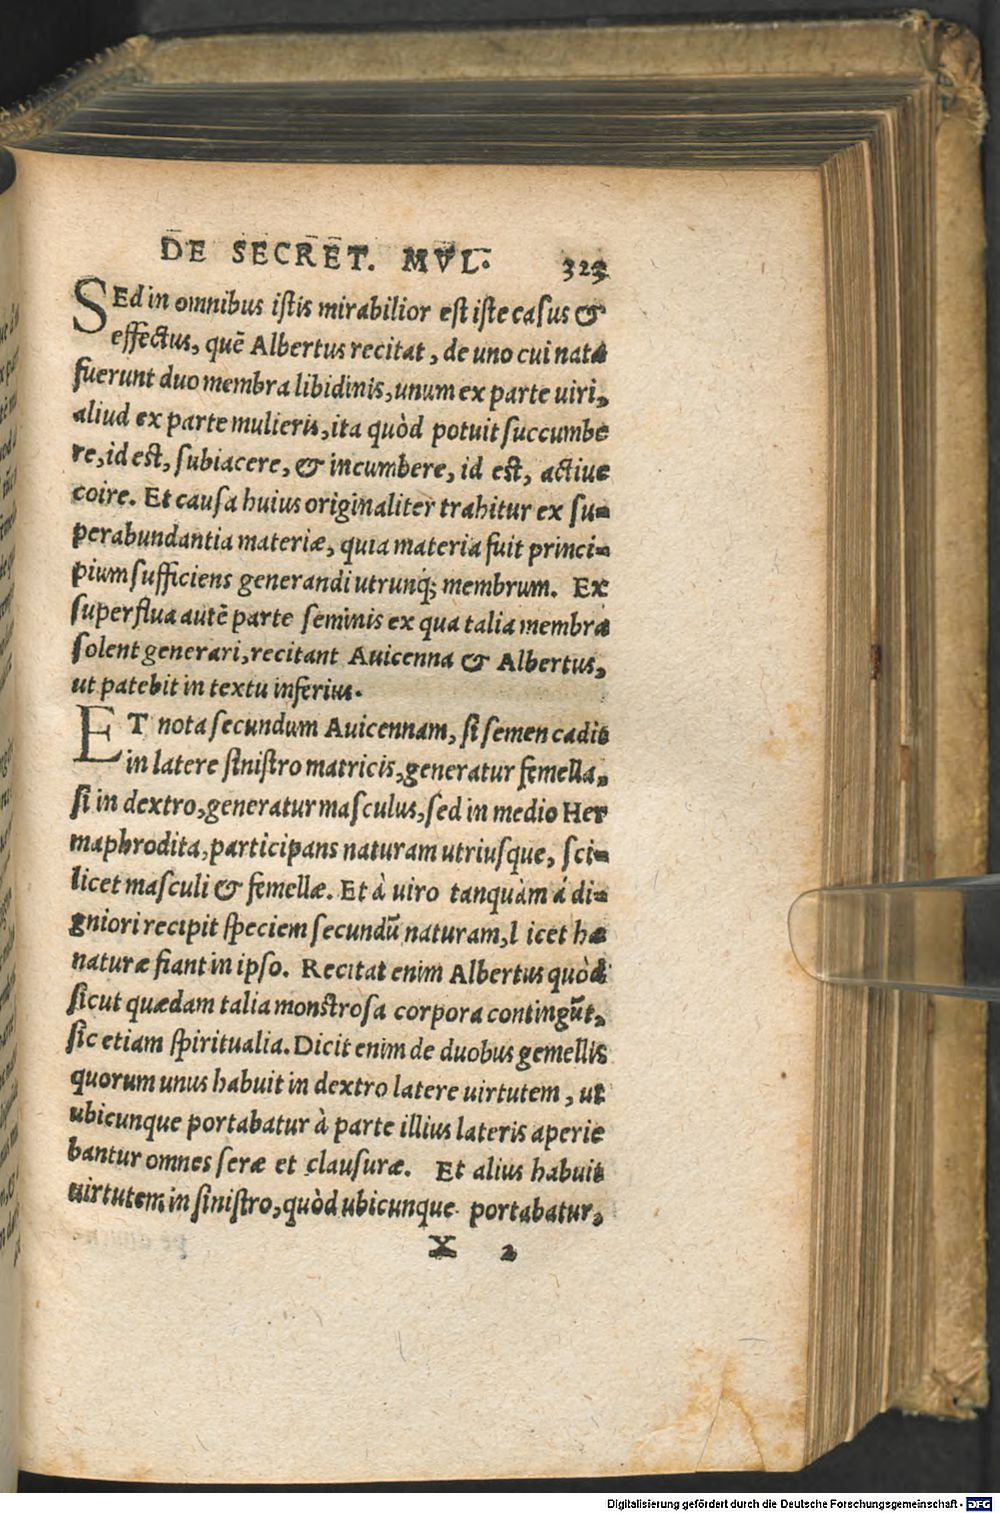 DE SECRET. MVL. 323
SEd in omnibus istis mirabilior est iste casus &
effectus, quē Albertus recitat, de uno cui nata
fuerunt duo membra libidinis, unum ex parte uiri,
aliud ex parte mulieris, ita quòd potuit succumbe
re, id est, subiacere, & incumbere, id est, actiue
coire. Et causa huius originaliter trahitur ex su-
perabundantia materiæ, quia materia fuit princi-
pium sufficiens generandi utrunq; membrum. Ex
superflua autē parte seminis ex qua talia membra
solent generari, recitant Auicenna & Albertus,
ut patebit in textu inferius.
ET nota secundum Auicennam, si semen cadit
in latere sinistro matricis, generatur femella,
si in dextro, generatur masculus, sed in medio Her
maphrodita, participans naturam utriusque, sci-
licet masculi & femellæ. Et à uiro tanquàm á di-
gniori recipit speciem secundū naturam, l icet hæ
naturæ fiant in ipso. Recitat enim Albertus quòd
sicut quædam talia monstrosa corpora contingūt,
sic etiam spiritualia. Dicit enim de duobus gemellis
quorum unus habuit in dextro latere uirtutem, ut
ubicunque portabatur à parte illius lateris aperie
bantur omnes seræ et clausuræ. Et alius habuit
uirtutem in sinistro, quòd ubicunque portabatur,
X 2
Digitalisierung gefördert durch die Deutsche Forschungsgemeinschaft - DFG